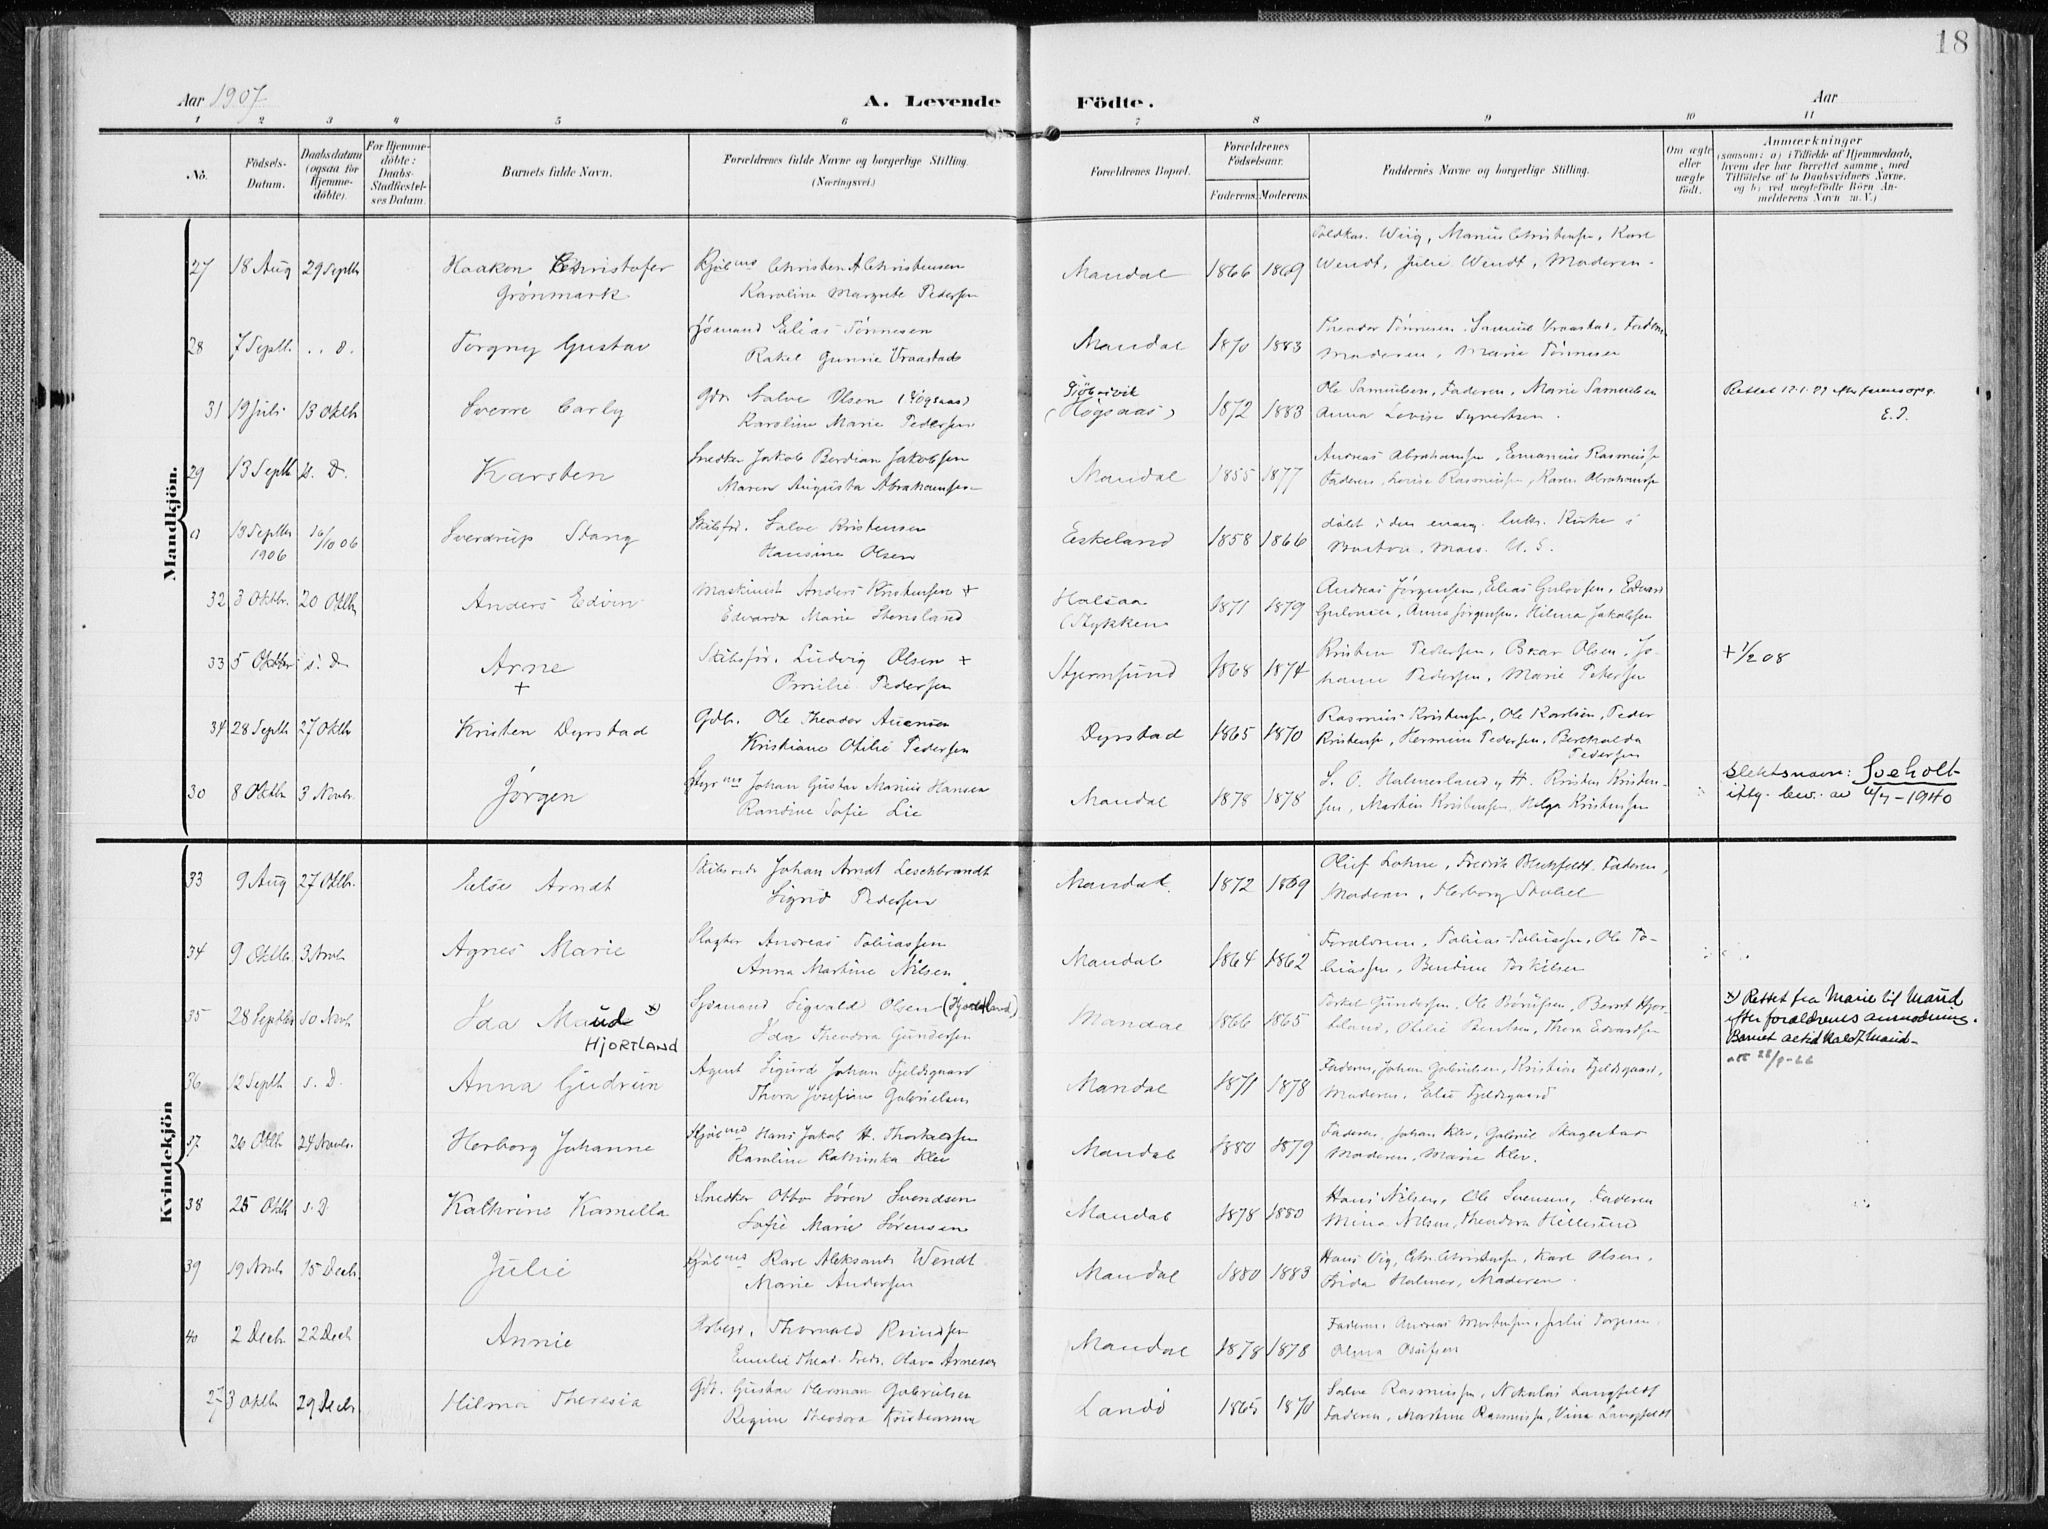 18
Aar 1907
A. Levende
Födte.
Aar
1 2 3 4 5 6 7 8 9 10 11
No.
Födsels-
Datum.
Daabsdatum
(ogsaa for
Hjemme-
döbte).
For Hjemme-
döbte:
Daabs-
Stadfæstel-
ses Datum.
Barnets fulde Navn.
Forældrenes fulde Navne og borgerlige Stilling.
(Næringsvei.)
Forældrenes Bopæl.
Forældrenes
Födselsaar.
Faderens. Moderens.
Faddernes Navne og borgerlige Stilling.
Om ægte
eller
uægte
födt.
Anmærkninger
(saasom: a) i Tilfælde af Hjemmedaab,
hvem der har forrettet samme, med
Tilföielse af to Daabsvidners Navne,
og b) ved uægtefödte Börn An-
melderens Navn m. V.)
Mandkjön.
27 18 Aug 29 Septbr Haakon Christofer Christen A Christensen Mandal 1866 1869 Wiig, Marius Christensen, Karl
Grönmark Karoline Margrete Pedersen Wendt, Julie Wendt, Moderen
28 7 Septb. Torgny Gustav Sömand Elias Tönnesen Mandal 1870 1883 Theodor Tönnesen
Rakel Gunnie Vraastad Moderen, Marie Tönnesen
31 19 Juli 13 Oktbr Sverre Carly Gdr Salve Olsen (Högsaas) (Högsaas) 1872 1883 Ole Samuelsen, Faderen, Marie Samuelsen
Karoline Marie Pedersen Anna Lovise Syvertsen.
E.J.
29 13 Septb s. D. Karsten Snedker Jakob Berdian Jakobsen Mandal 1855 1877 Andreas Abrahamsen, Rasmussen
Maren Augusta Abrahamsen Faderen, Lovise Rasmussen, Karen Abrahamsen
13 Septbr 16/10 06 Sverdrup Stang Skibsför. Salve Kristensen Eskeland 1858 1866 döbt i den evang. luth. Kirke i
1906 Hansine Olsen Boston. Mass. U. S.
32 3 Oktbr. 20 Oktbr Anders Edvin Maskinist Anders Kristensen + Halsaa 1871 1879 Andreas Jörgensen, Elias Gulovsen, Edvard
Edvarda Marie Stensland (Stykken Gulovsen, Anna Jörgensen, Hilma Jakobsen
33 5 Oktbr s. D Arne Skibsför. Ludvig Olsen + Stjernsund 1868 1874 Kristen Pedersen, Oskar Olsen, Jo-
+ Emilie Pedersen hanne Pedersen, Marie Pedersen
+ 1/2 08
34 28 Septb 27 Oktbr Kristen Dyrstad Gdb. Ole Theodor Aanensen Dyrstad 1865 1870 Rasmus Kristensen, Ole Karlsen, Peder
Kristiane Otilie Pedersen Kristensen, Hermine Pedersen, Berthalda
Pedersen
30 8 Oktbr 3 Novbr. Jörgen Styrmd Johan Gustav Marius Hansen Mandal 1878 1878 Kristen Kristen-
Randine Sofie Lie sen, Martin Kristensen, Helga Kristensen
Slektsnavn: Soeholt
iflg. bev. av 4/7 - 1940
Kvindekjön
33 9 Aug 27 Oktbr. Else Arndt Johan Arndt Leschbrandt Mandal. 1872 1869 Oluf Lohne, Fredrik Blechfeldt, Faderen,
Sigrid Pedersen Moderen, Herborg Stubel
34 9 Oktbr. 3 Novb Agnes Marie Slagter Andreas Tobiassen Mandal 1864 1862 Forældrene, Tobias Tobiassen, Ole To-
Anna Martine Nilsen biassen, Bendine Torkilsen
35 28 Septbr 10 Novb Ida Maud x) Sjömand Sigvald Olsen (Hjortland) Mandal 1866 1865 Torkel Gundersen, Bernt Hjor-
HJORTLAND Ida Theodora Gundersen tland, Otilie Bentsen, Thora Edvardsen
x) Rettet fra Marie til Maud
efter forældrenes anmodning.
Barnet altid kaldt Maud -
36 12 Septb s. D. Anna Gudrun Agent Sigurd Johan Fjeldsgaard Mandal 1871 1878 Faderen, Johan Gabrielsen, Kristian Fjeldsgaard,
Thora Josefine Gabrielsen Moderen, Else Fjeldsgaard
37 26 Oktb 24 Novbr. Herborg Johanne Hans Jakob H. Thorkelsen Mandal 1880 1879 Faderen, Johan Klev, Gabriel Skagestad
Karoline Katrinka Klev Moderen, Marie Klev.
38 25 Oktb s. D. Kathrine Kamilla Snedker Otto Sören Svendsen Mandal 1878 1880 Hans Nilsen, Ole Svensen, Faderen
Sofie Marie Sörensen Mina Nilsen, Theodora Hillesund
39 19 Novb 15 Decb. Julie Karl Aleksander Wendt Mandal 1880 1883 Hans Vig, Chr. Christensen, Karl Olsen,
Marie Andersen Frida Holmer, Moderen.
40 2 Decb. 22 Decb Annie Arbeid. Thorvald Knudsen Mandal 1878 1878 Faderen, Andreas Mortensen, Julie Torgersen
Emilie Thea Fredr. Olava Arnesen Olina
27 3 Oktbr 29 Decb. Hilma Theresia Gbr. Gustav Herman Gabrielsen Landö 1865 1870 Salve Rasmussen, Nikolai Langfeldt
Regine Theodora Kristiansen Faderen, Martine Rasmussen, Vina Langfeldt